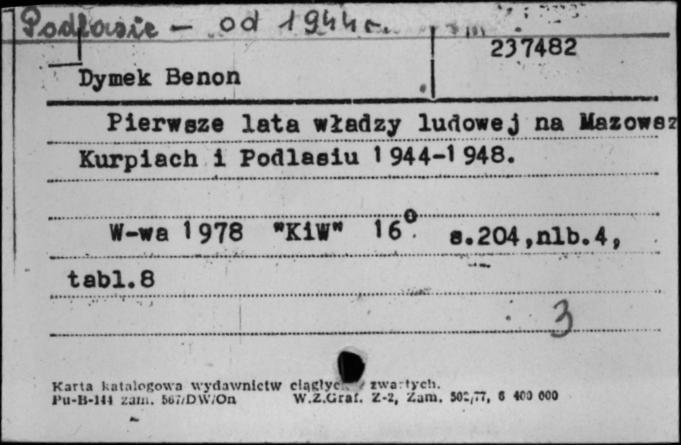 Podlasie - od 1944 r.
237482
Dymek Benon
Pierwsze lata władzy ludowej na Mazowsz
Kurpiach i Podlasiu 1944-1948.
W-wa 1978 "KiW" 16° s.204,nlb.4,
tabl.8
3
Karta katalogowa wydawnictw ciągłych i zwartych.
Pu-B-144 zam. 567/DW/On W.Z.Graf. Z-2, Zam. 502/77, 6 400 000